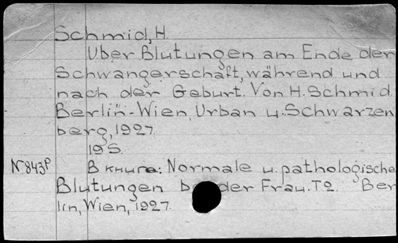 Schmid, H.
Uber Blutungen am Ende der
Schwangerschaft, während und
nach der Geburt. Von H. Schmid
Berlin-Wien, Urban u. Schwarzen
berg, 1927.
19 S.
№ 843р В книге: Normale u. pathologische
Blutungen be der Frau. T 2. Ber
lin, Wien, 1927